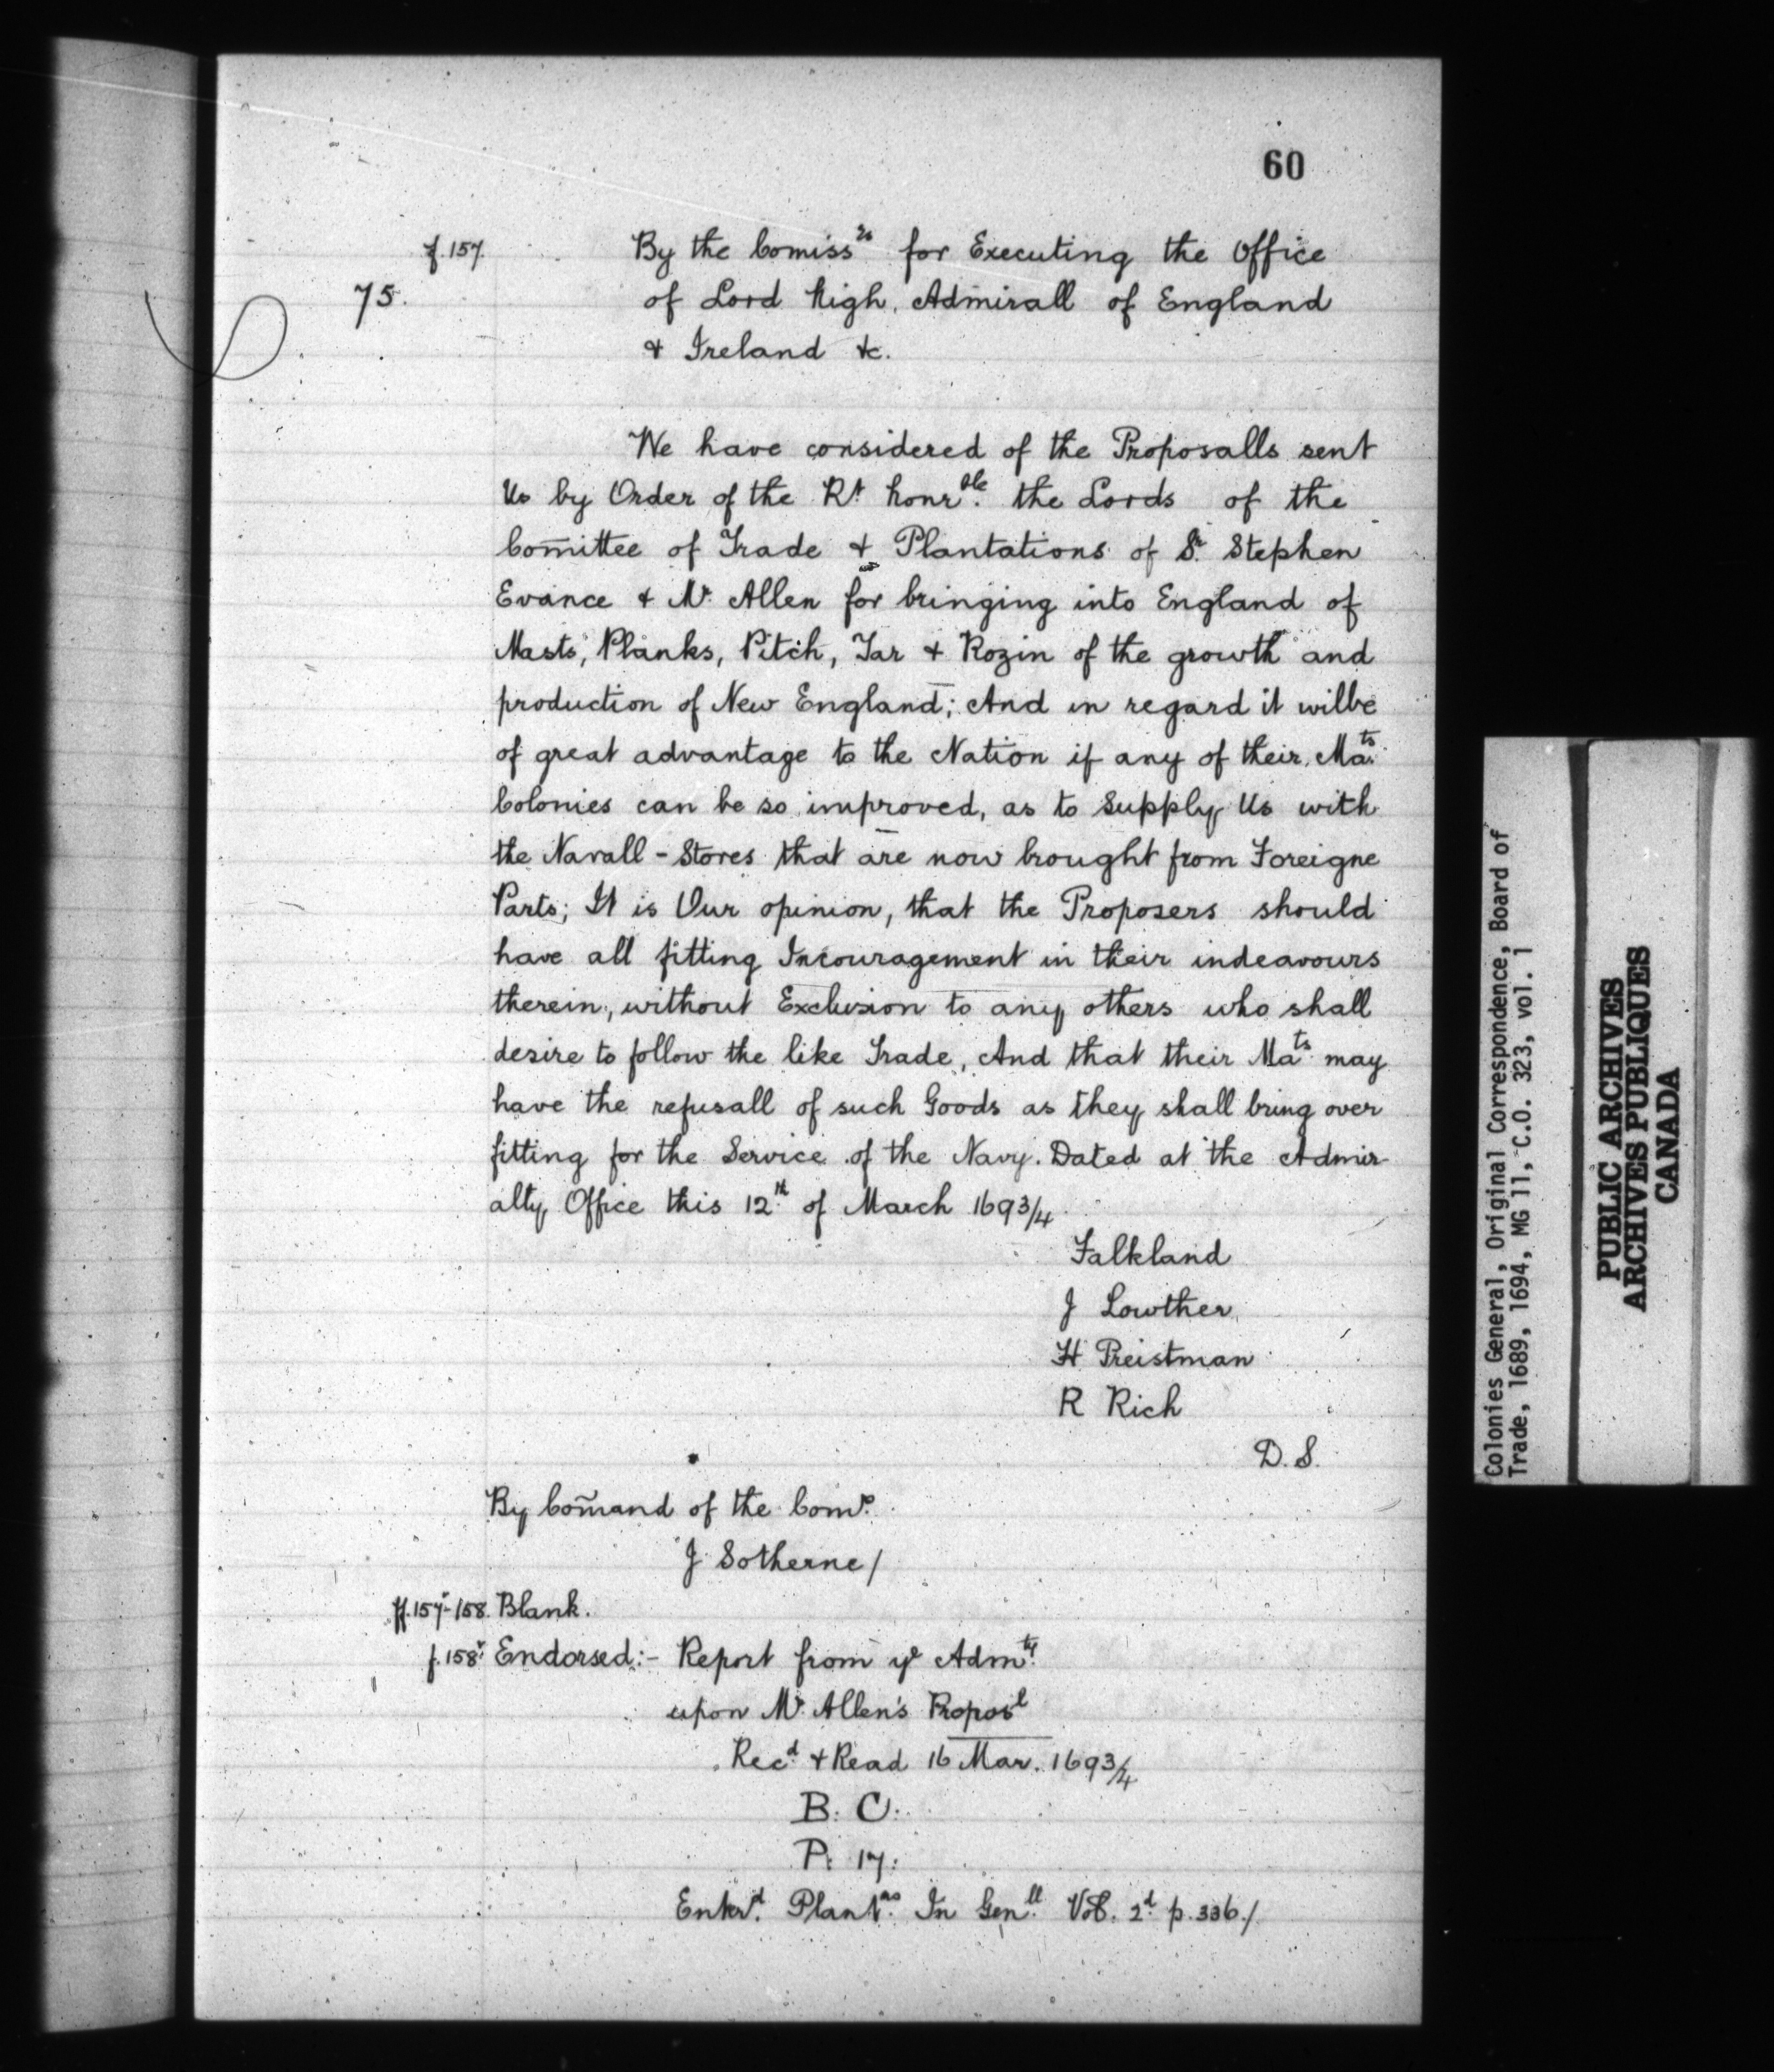 60
f.157.
By the Comissrs for Executing the Office
75.
of Lord high Admirall of England
& Ireland &c.
We have considered of the Proposalls sent
Us by Order of the Rt. honrble. the Lords of the
Com̃ittee of Trade & Plantations of Sr. Stephen
Evance & Mr. Allen for bringing into England of
Masts, Planks, Pitch, Tar & Rozin of the growth and
production of New England; And in regard it wilbe
of great advantage to the Nation if any of their Mats.
Colonies can be so improved, as to Supply Us with
the Navall-Stores that are now brought from Foreigne
Parts; It is Our opinion, that the Proposers should
have all fitting Incouragement in their indeavours
therein, without Exclusion to any others who shall
desire to follow the like Trade, And that their Mats. may
have the refusall of such Goods as they shall bring over
fitting for the Service of the Navy. Dated at the Admir-
alty Office this 12th. of March 1693/4
Falkland
J Lowther
H Preistman
R Rich
D.S.
By Com̃and of the Comrs.
J Sotherne/
ff.157v-158. Blank.
f.158v. Endorsed:- Report from ye Admty.
upon Mr. Allen's Proposl
Recd. & Read 16 Mar. 1693/4
B. C.
P. 17.
Enterd. Plantns. In Genll. Vol. 2d. p.336./
Colonies General, Original Correspondence, Board of
Trade, 1689, 1694, MG 11, C.O. 323, vol. 1
PUBLIC ARCHIVES
ARCHIVES PUBLIQUES
CANADA